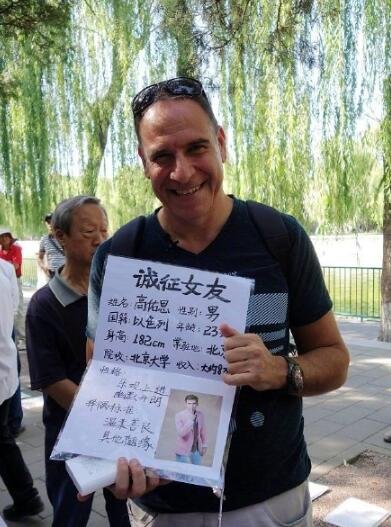 诚征女友
姓名:高佑思 性别:男
国籍:以色列 年龄:23
身高:182cm 常驻地:北
院校:北京大学 收入:大约8
性格:
乐观上进
幽默开朗
择偶标准
温柔善良
其他随缘